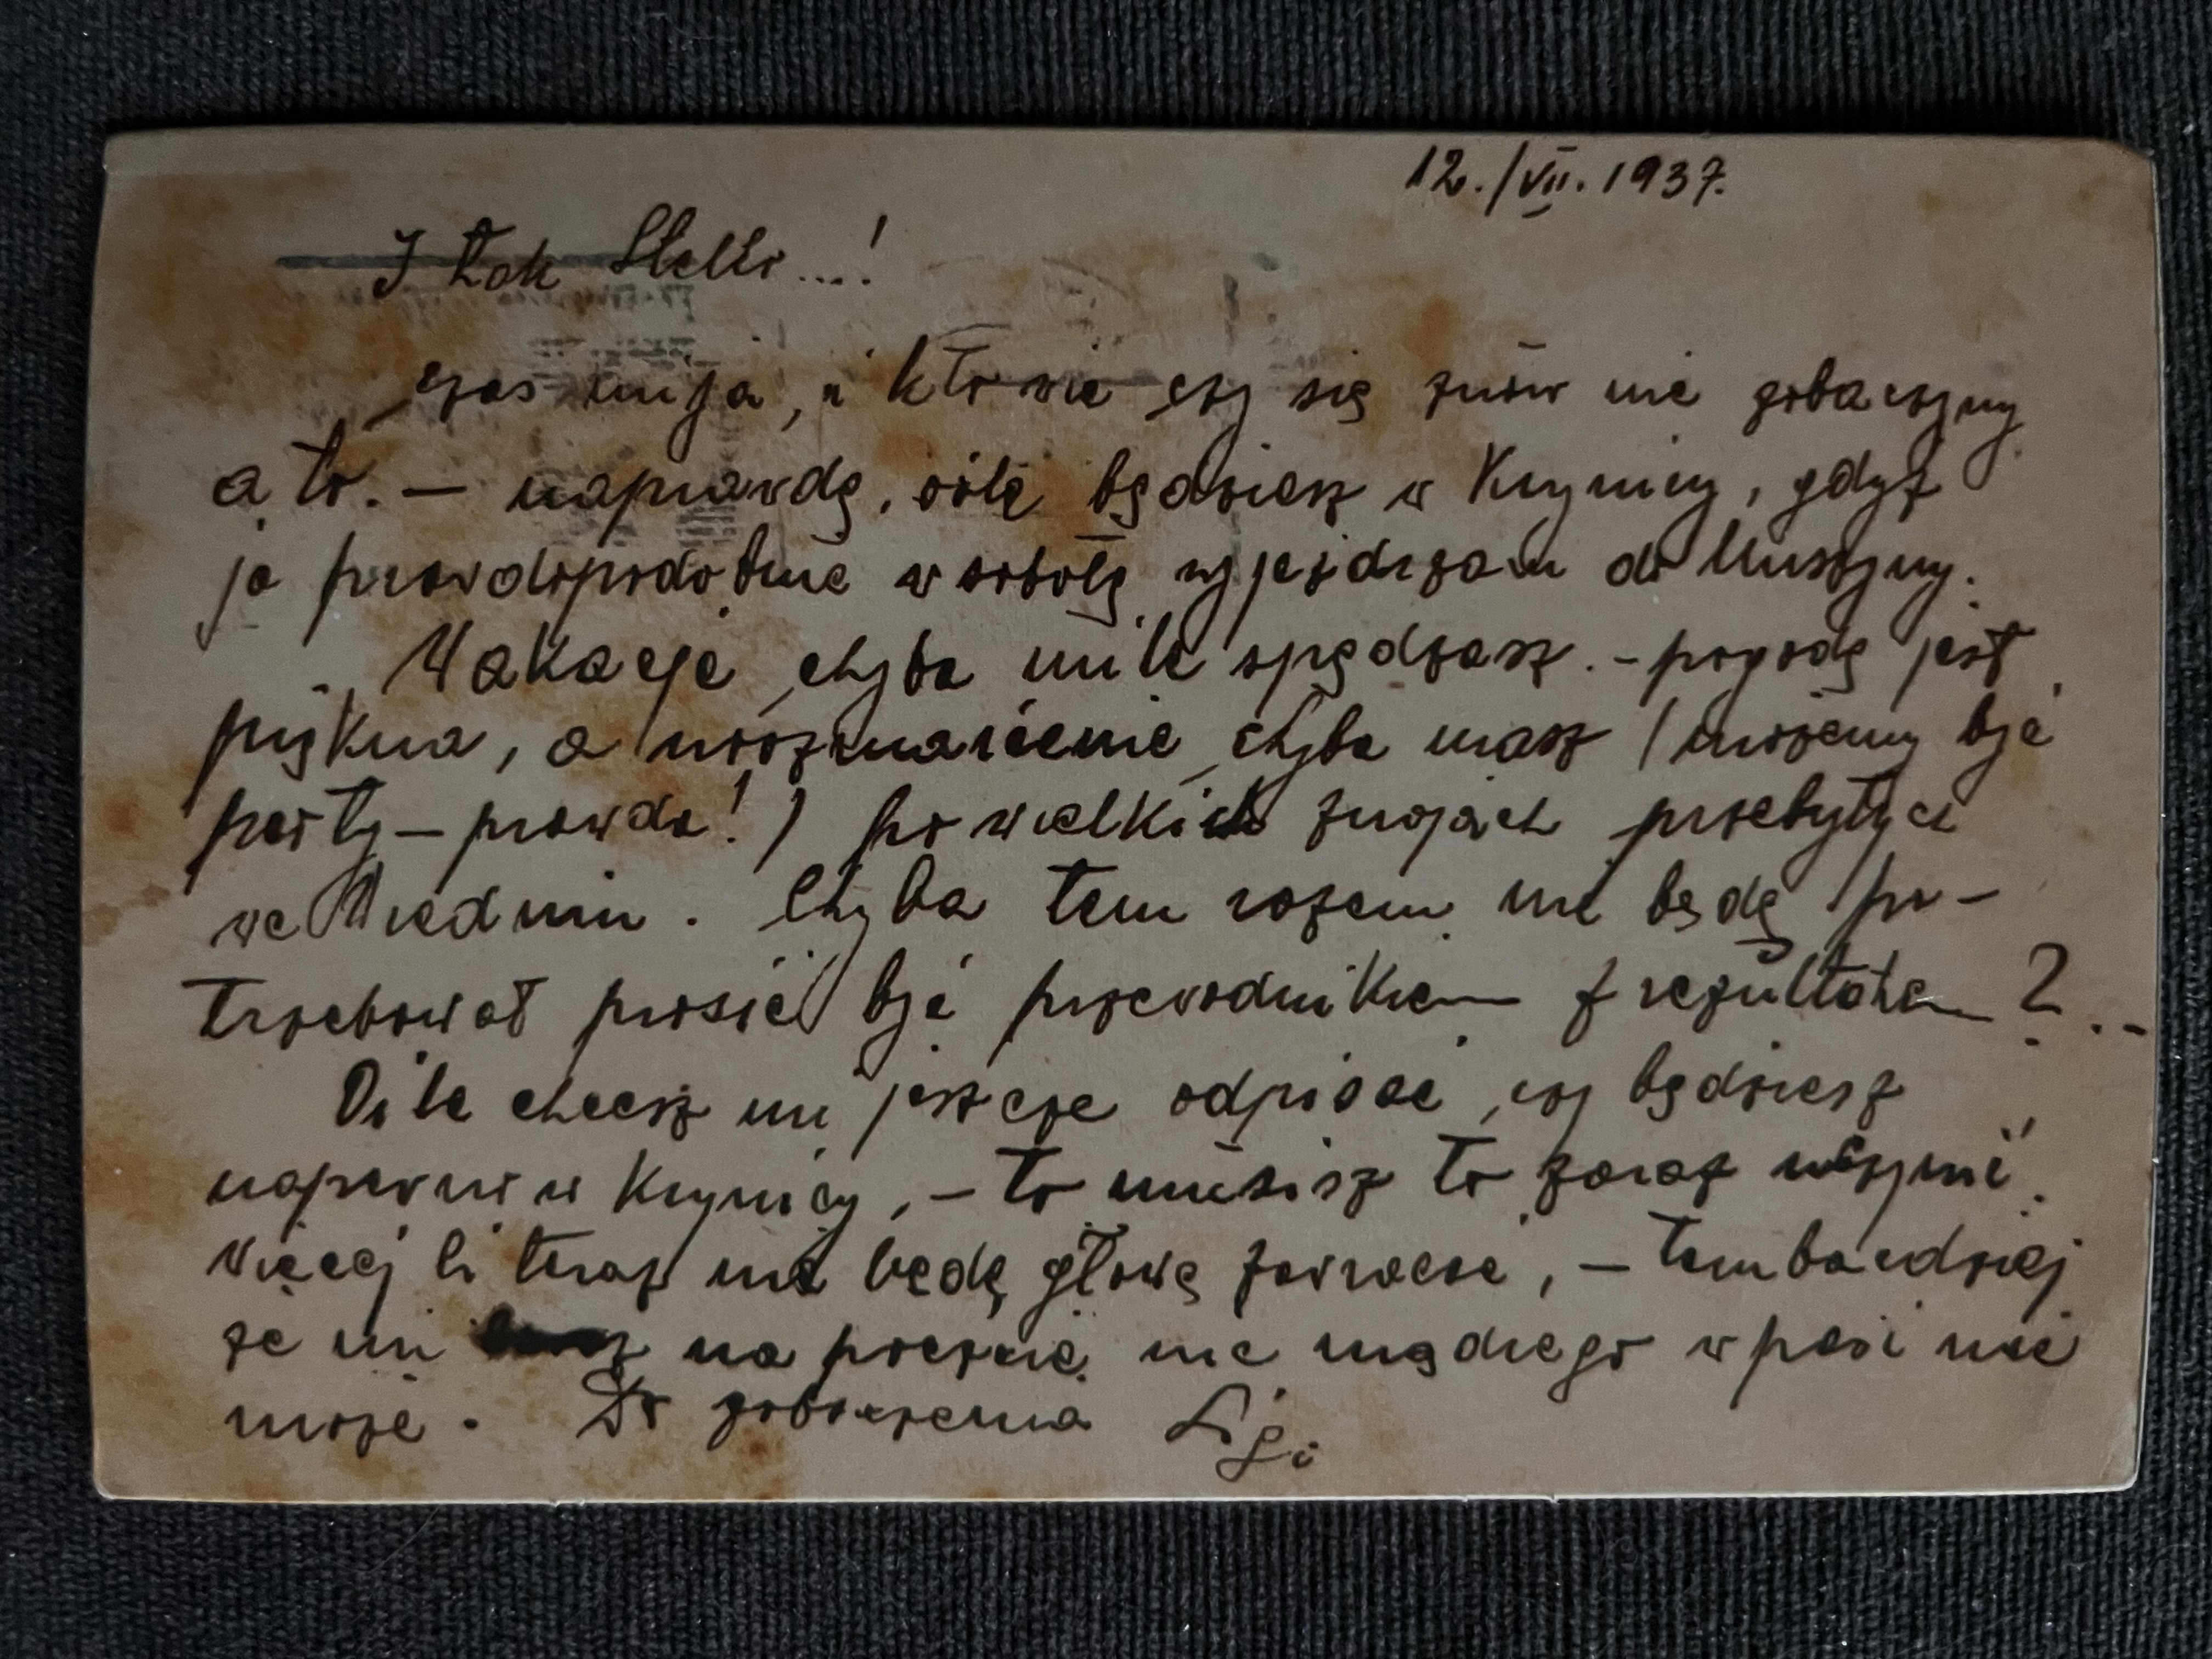 12./VII. 1937.
I tak Stello...!
czas mija, i kto wie czy się znów nie zobaczymy
a to. — naprawdę, oile będziesz w Krynicy, gdyż
ja prawdopodobnie w sobotę wyjeżdżam do Muszyny.
Wakacje chyba mile spędzasz. - pogodę jest
piękna, a urozmaicenie chyba masz (możemy być
party — prawda!) po wielkich znojach przebytych
we Wiedniu. Chyba tem razem nie będę po-
trzebował prosić być przewodnikiem z rezultatem ?...
Oile chcesz mi jeszcze odpisać, czy będziesz
napewno w Krynicy, — to musisz to zaraz uczynić.
Więcej Ci teraz nie będę głowę zawracać, — tembardziej
że mi na prędce nic mądrego wpaść nie
może. Do zobaczenia